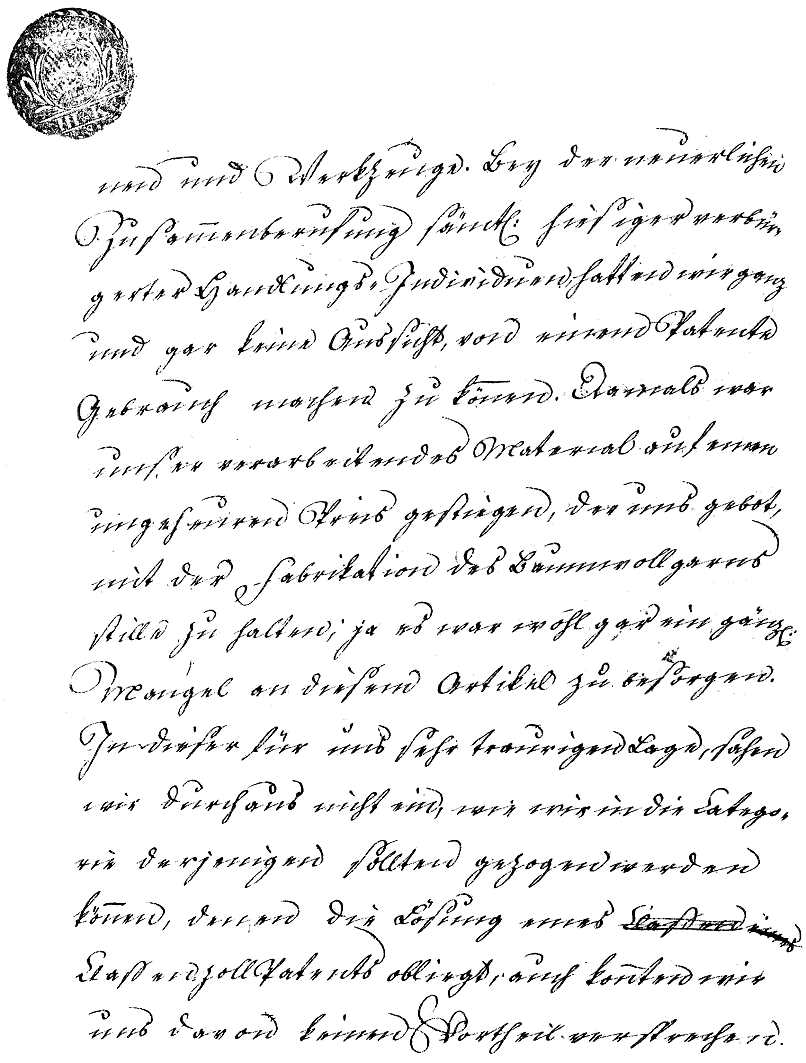 III K
nen und Werkzeuge. Bey der neuerlichen
Zusam̅enberufung sämtl: hiesiger verbür-
gerter Handlungs-Individuen, hatten wir ganz
und gar keine Aussicht, von einem Patente
Gebrauch machen zu kön̅en. Damals war
unser verarbeitendes Material auf einen
ungeheuren Preis gestiegen, der uns gebot,
mit der Fabrikation des Baumwollgarns
stille zu halten; ja es war wohl gar ein gänzl:
Mangel an diesem Artikel zu besorgen.
In dieser für uns sehr traurigen Lage, sahen
wir durchaus nicht ein, wie wir in die Catego-
rie derjenigen sollten gezogen werden
kön̅en, denen die Lösung eines Classen eines
Classenzoll Patents obliegt, auch kon̅ten wir
uns davon keinen Vortheil versprechen.